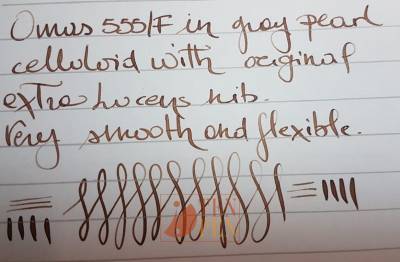 Omas 555/F in gray pearl
celluloid with original
extra luceus nib.
Very smooth and flexible.